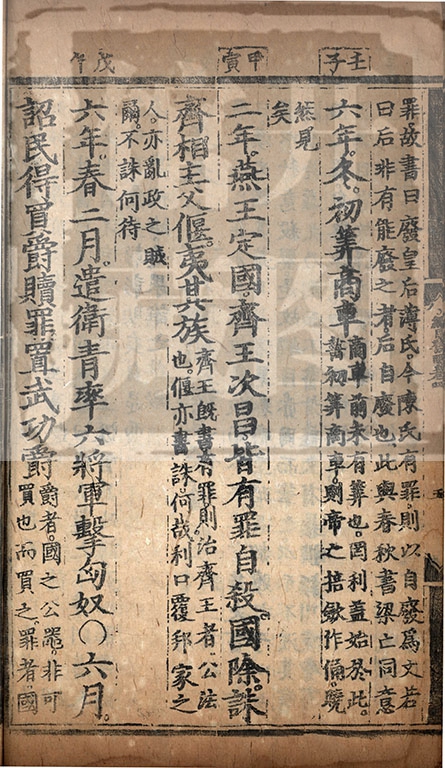 壬子
罪故書曰廢皇后薄氏今陳氏有罪則以自廢爲文若
曰后非有能廢之者后自廢也此與春秋書梁亡同意
六年。冬。初筭商車
商車前未有筭也罔利蓋始於此。
書初筭商車。則帝之掊斂作俑曉
然見
矣
甲寅
二年。燕王定國。齊王次昌。皆有罪自殺。國除。誅
齊相主父偃。夷其族
齊王旣書有罪。則治齊王者公法
也。偃亦書誅何哉利口覆邦家之
人。亦亂政之賊
歟。不誅何待
戊午
六年。春二月。遣衛青率六將軍擊匈奴○六月。
詔民得買爵贖罪置武功爵
爵者。國之公噐。非可
買也而買之。罪者國